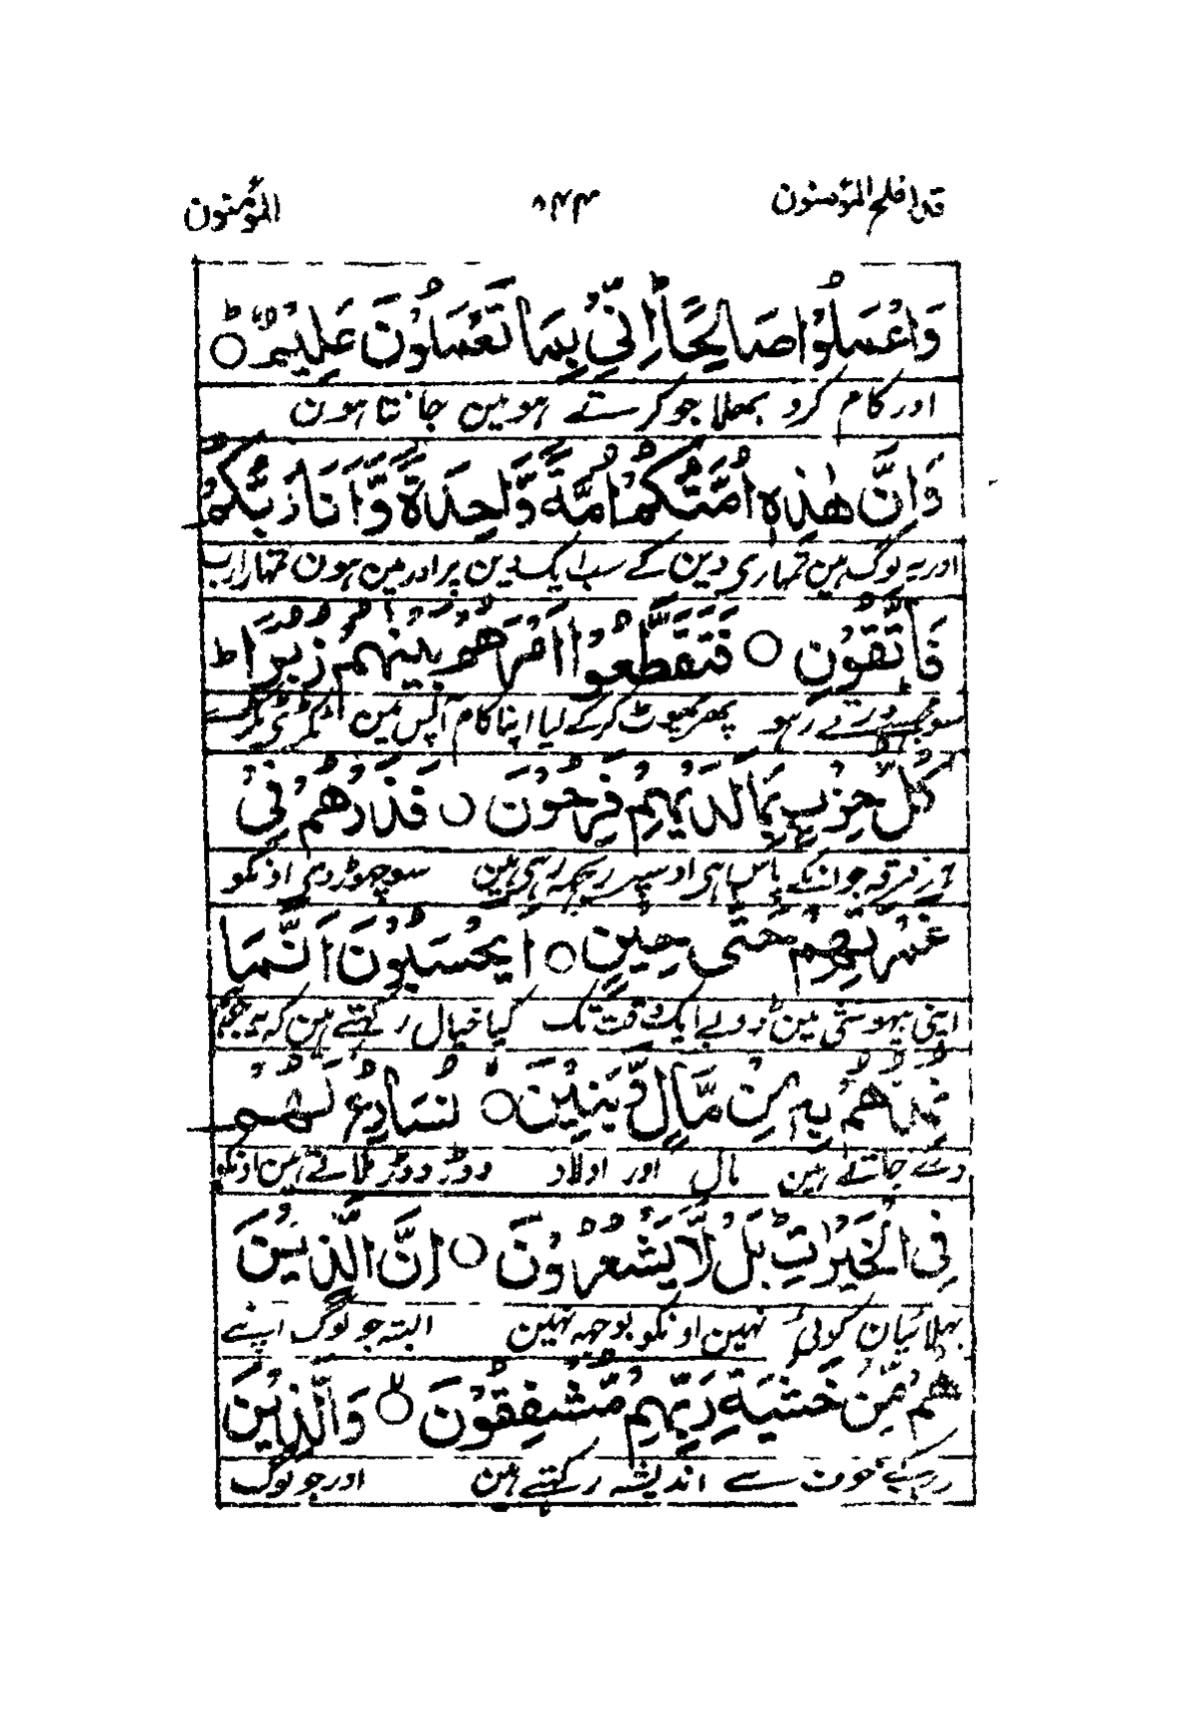 قد افلح المؤمنون ۸۴۴ المؤمنون
وَاعْمَلُوْا صَالِحًا ؕ اِنِّيْ بِمَا تَعْمَلُوْنَ عَلِيْمٌ ○ؕ
اور کام کرو بھلا جو کرتے ہو مین جانتا ہون
وَاِنَّ هٰذِهٖ اُمَّتُكُمْ اُمَّةً وَّاحِدَةً وَّاَنَا رَبُّكُمْ
اور یہ لوگ ہین تمہاری دین کے سب ایک دین پر اور مین ہون تمہارا رب
فَاتَّقُوْنِ ○ فَتَقَطَّعُوْا اَمْرَهُمْ بَيْنَهُمْ زُبُرًا ؕ
سو مجہسے ڈرتے رہو پھر پھوٹ کر کے لیا اپنا کام آپس مین ٹکڑی ٹکڑے
كُلُّ حِزْبٍ بِمَا لَدَيْهِمْ فَرِحُوْنَ ○ فَذَرْهُمْ فِيْ
ہر فرقہ جو انکے پاس ہی اوسپر ریجہ رہی ہین سو چھوڑ دی اونکو
غَمْرَتِهِمْ حَتّٰى حِيْنٍ ○ اَيَحْسَبُوْنَ اَنَّمَا
اپنی بیہوشی مین ڈوبے ایک وقت تک کیا خیال رکہتے ہین کہ یہ جو
نُمِدُّهُمْ بِهٖ مِنْ مَّالٍ وَّبَنِيْنَ ○ نُسَارِعُ لَهُمْ
دے جاتے ہین مال اور اولاد دوڑ دوڑ ملاتے ہین اونکو
فِي الْخَيْرٰتِ ؕ بَلْ لَّا يَشْعُرُوْنَ ○ اِنَّ الَّذِيْنَ
بہلائیان کوئی نہین اونکو بوجہہ نہین البتہ جو لوگ اپنے
هُمْ مِّنْ خَشْيَةِ رَبِّهِمْ مُّشْفِقُوْنَ ○ۙ وَالَّذِيْنَ
رب کے خوف سے اندیشہ رکہتے ہین اور جو لوگ